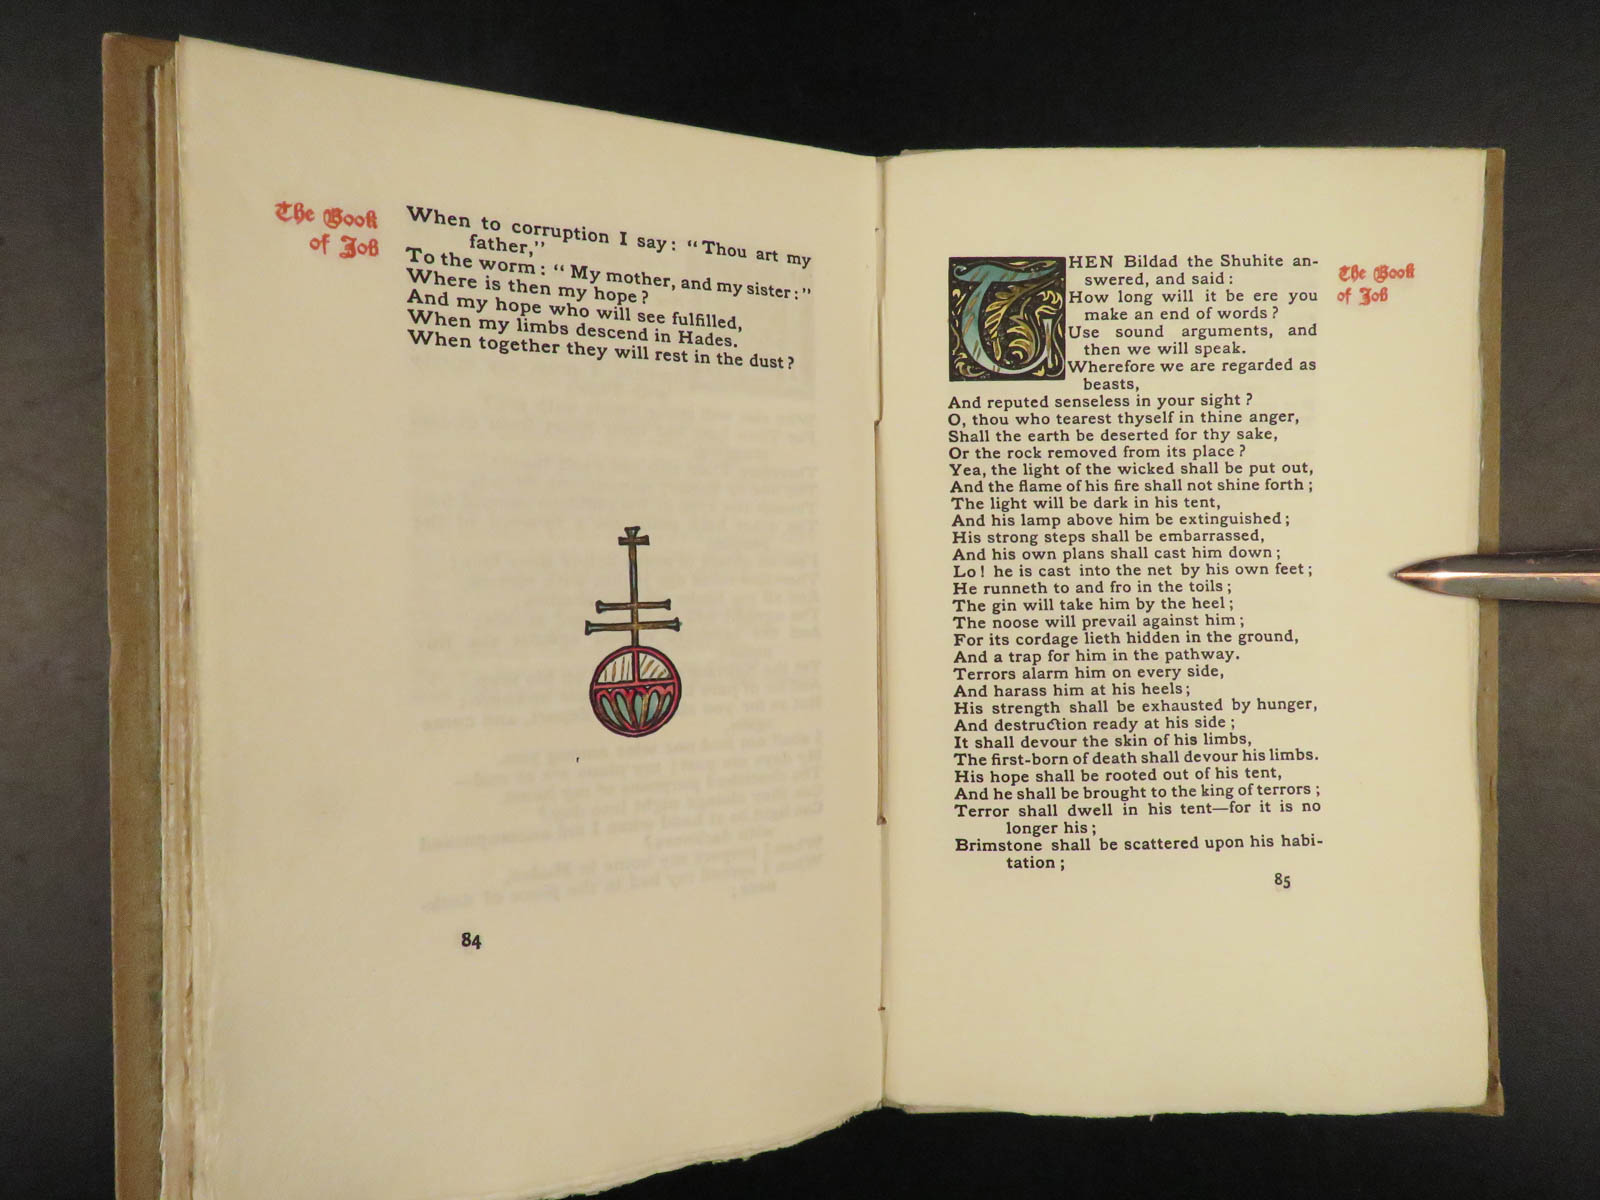 The Book
of Job
When to corruption I say: "Thou art my
father,"
To the worm: "My mother, and my sister:"
Where is then my hope?
And my hope who will see fulfilled,
When my limbs descend in Hades.
When together they will rest in the dust?
84
THEN Bildad the Shuhite an-
swered, and said:
How long will it be ere you
make an end of words?
Use sound arguments, and
then we will speak.
Wherefore we are regarded as
beasts,
And reputed senseless in your sight?
O, thou who tearest thyself in thine anger,
Shall the earth be deserted for thy sake,
Or the rock removed from its place?
Yea, the light of the wicked shall be put out,
And the flame of his fire shall not shine forth;
The light will be dark in his tent,
And his lamp above him be extinguished;
His strong steps shall be embarrassed,
And his own plans shall cast him down;
Lo! he is cast into the net by his own feet;
He runneth to and fro in the toils;
The gin will take him by the heel;
The noose will prevail against him;
For its cordage lieth hidden in the ground,
And a trap for him in the pathway.
Terrors alarm him on every side,
And harass him at his heels;
His strength shall be exhausted by hunger,
And destruction ready at his side;
It shall devour the skin of his limbs,
The first-born of death shall devour his limbs.
His hope shall be rooted out of his tent,
And he shall be brought to the king of terrors;
Terror shall dwell in his tent—for it is no
longer his;
Brimstone shall be scattered upon his habi-
tation;
The Book
of Job
85